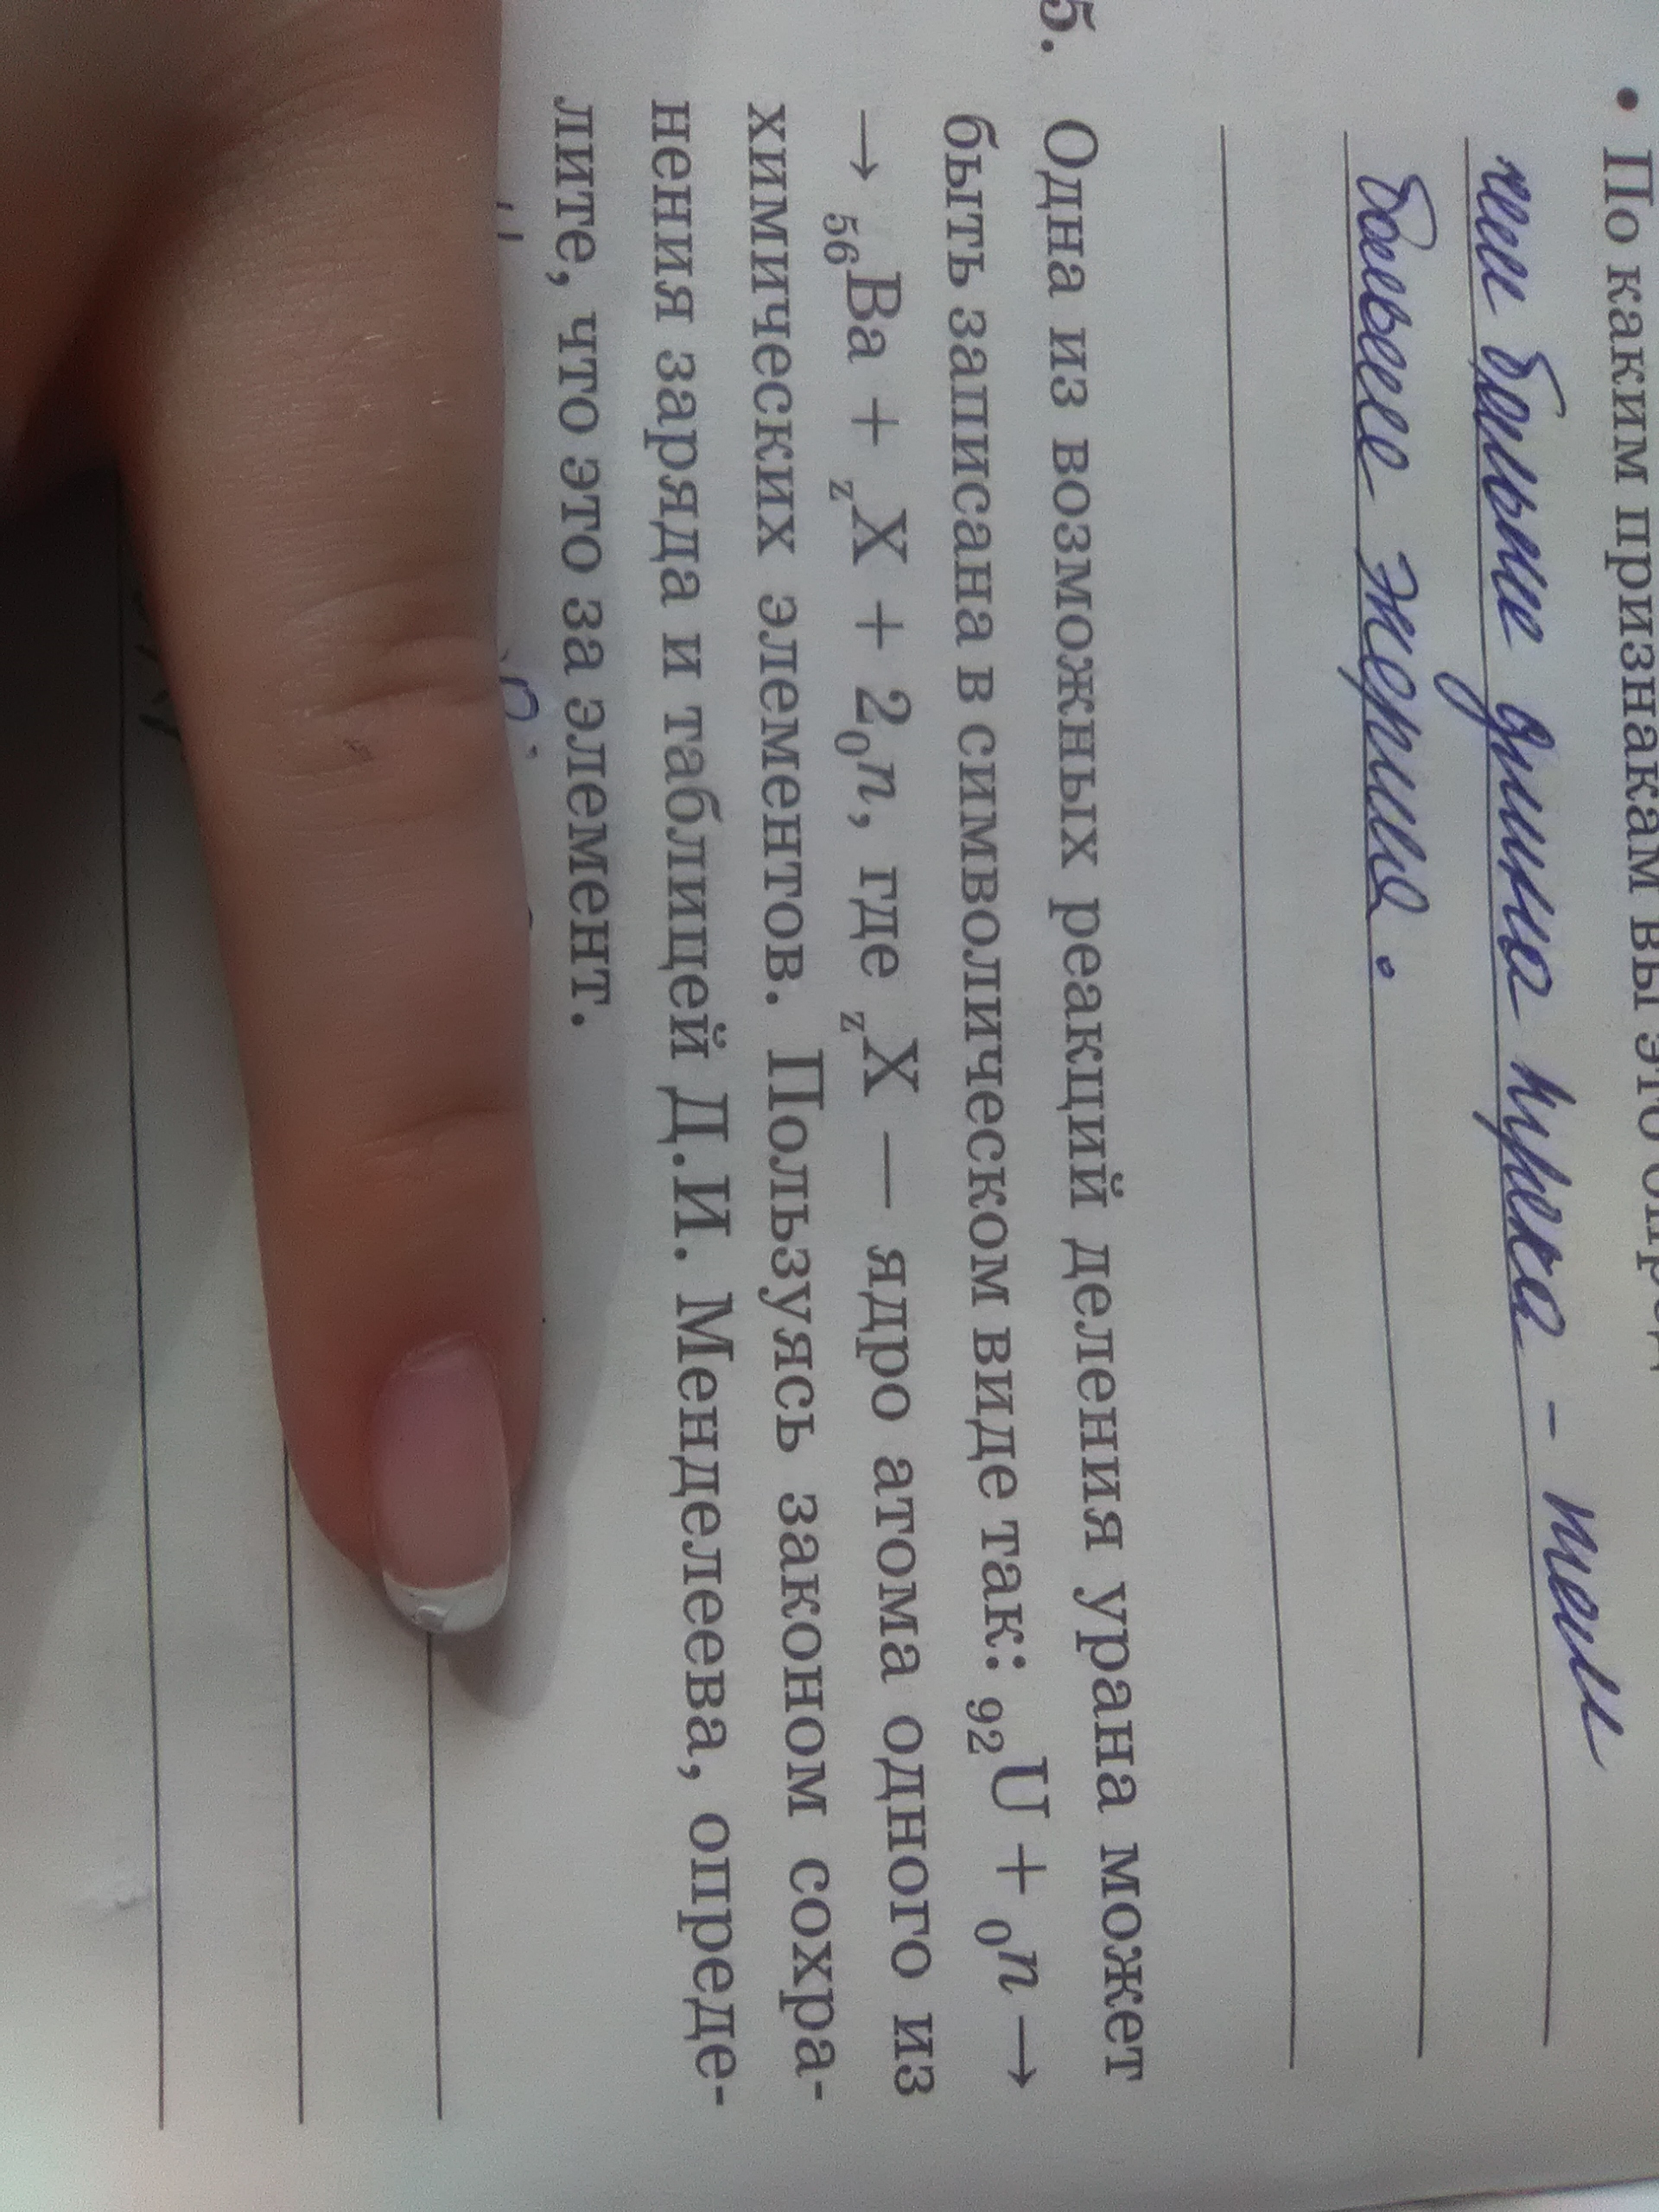 • По каким признакам вы это
чем больше длина трека – тем
больше энергия.
5. Одна из возможных реакций деления урана может
быть записана в символическом виде так: ₉₂U + ₀n →
→ ₅₆Ba + zX + 2₀n, где zX — ядро атома одного из
химических элементов. Пользуясь законом сохра-
нения заряда и таблицей Д.И. Менделеева, опреде-
лите, что это за элемент.